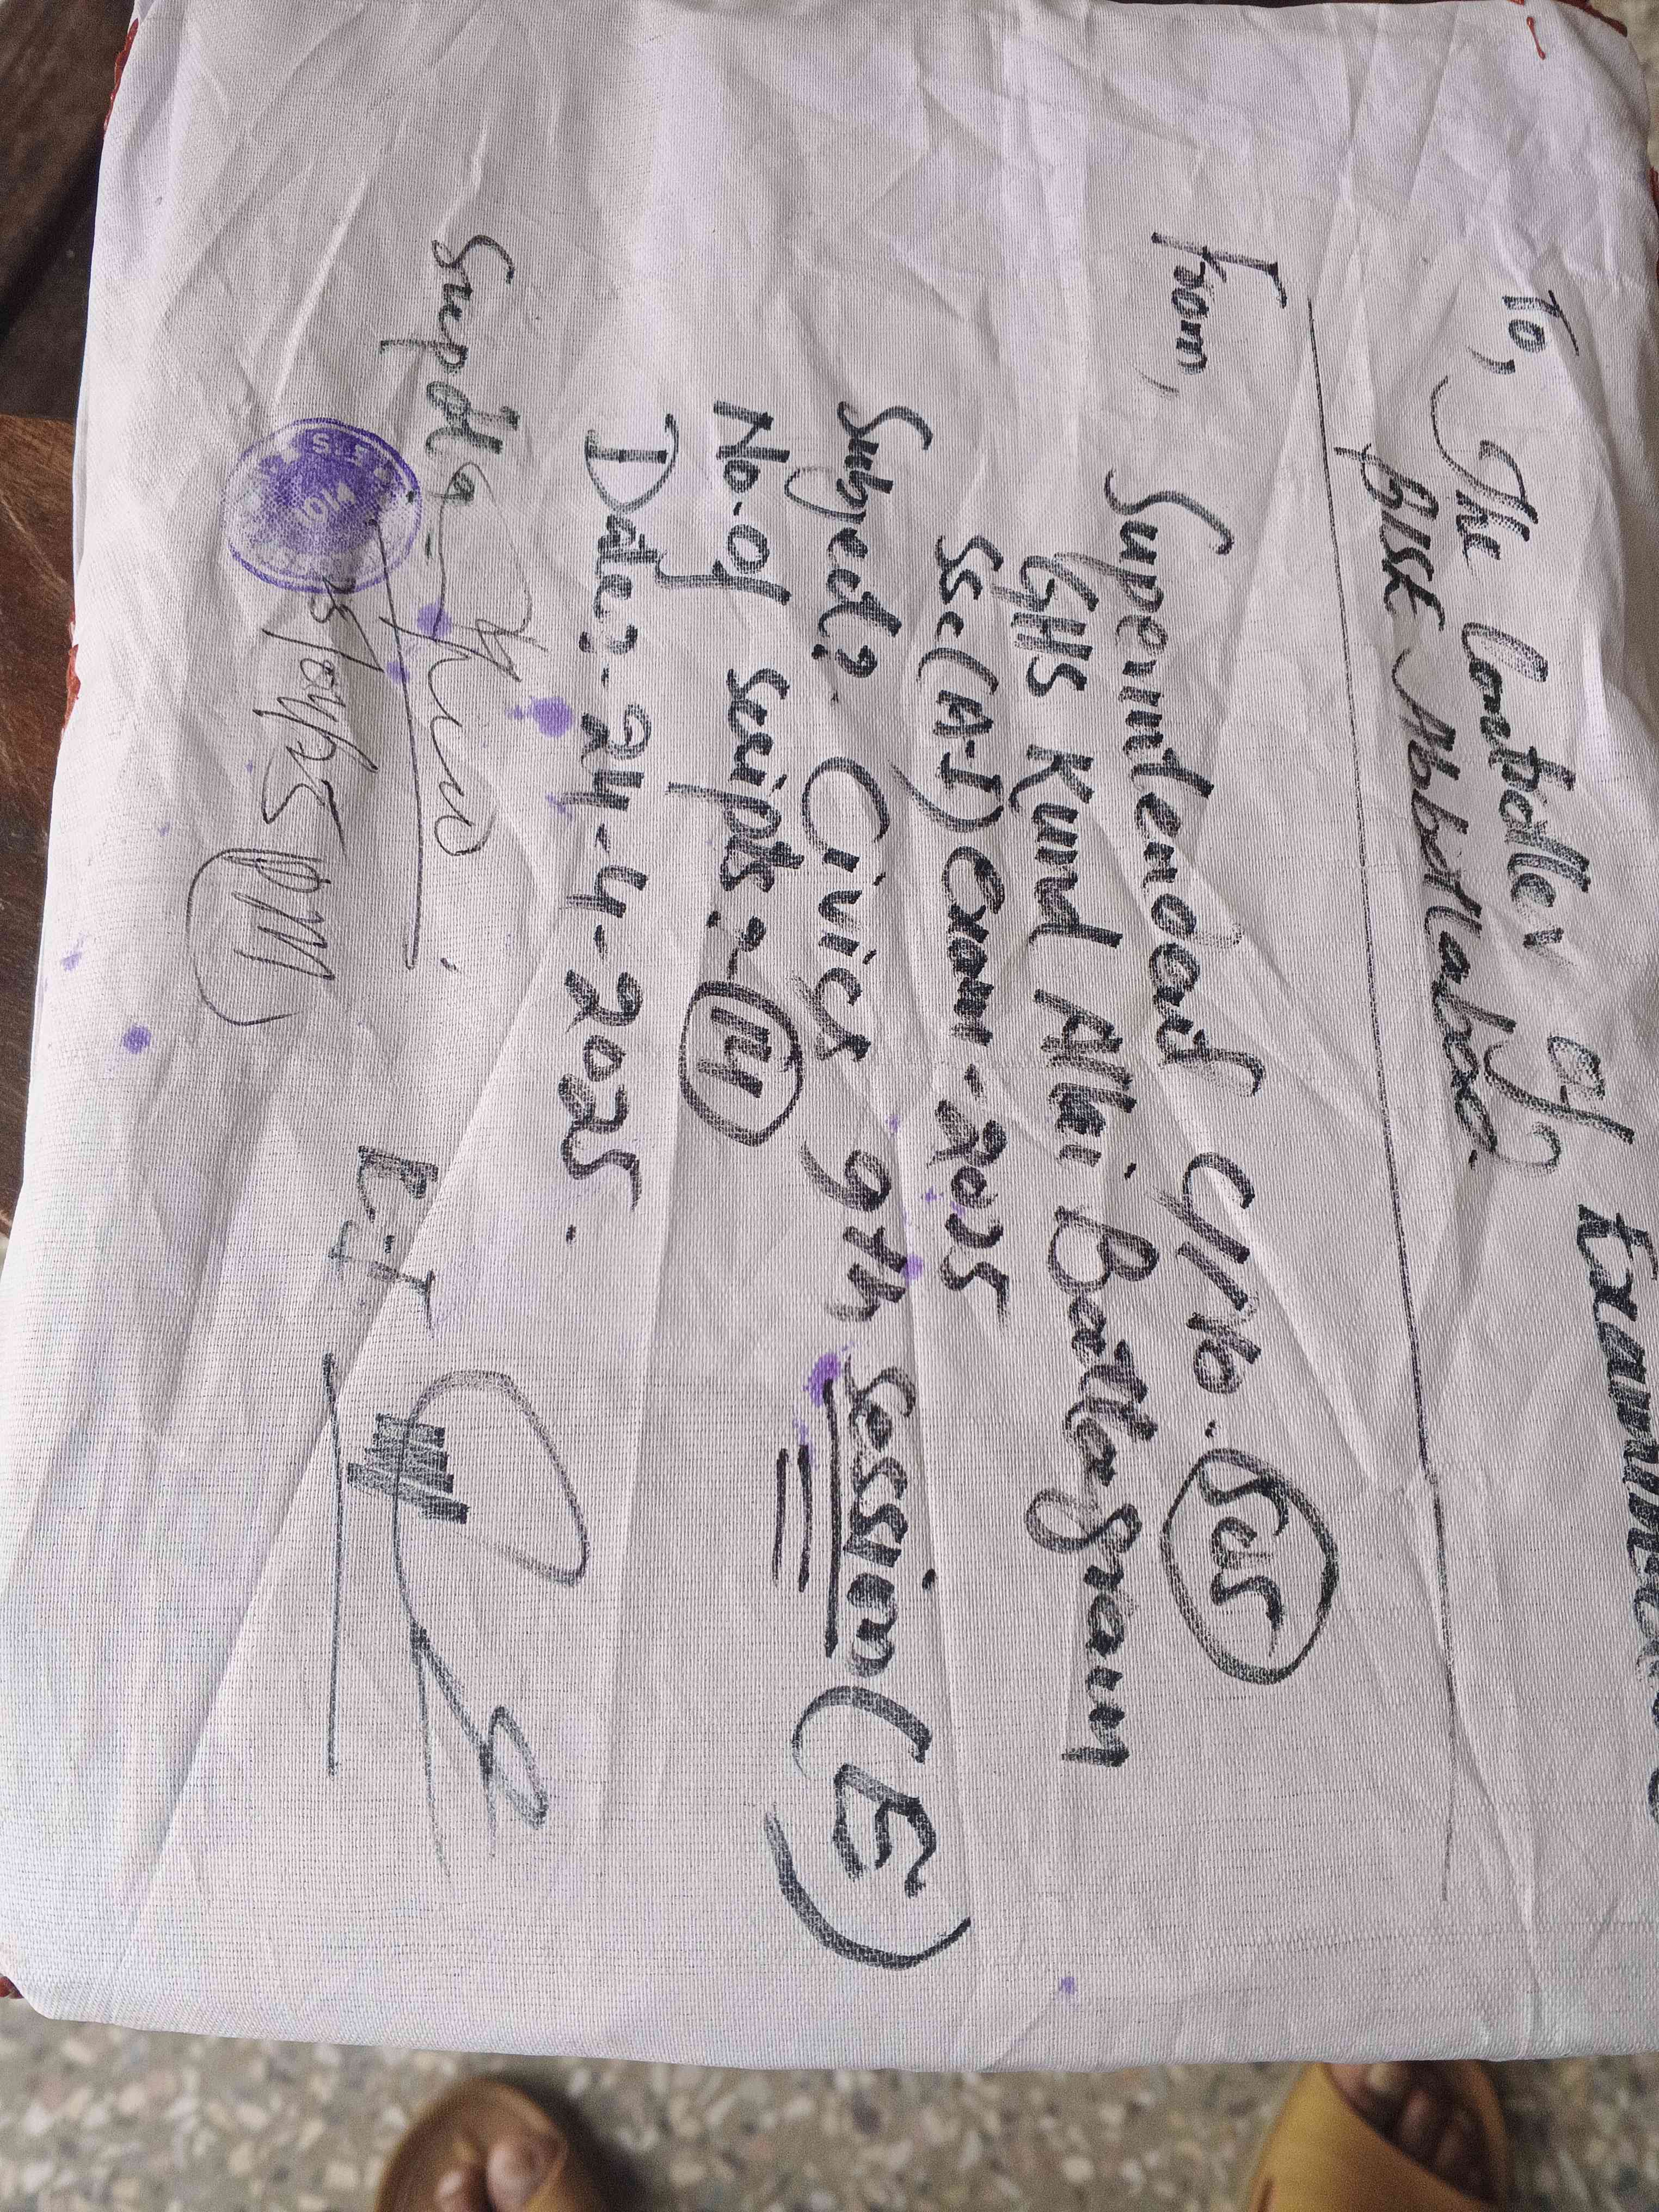 To, The Controller Of Examination
BISE Abbottabad
From,
Superintendent C/No. 525
GHS Kund Allai Battagram
SSC (A-I) Exam - 2025
Subject:- Civics 9th Session (E)
No. of Scripts:- 14
Date:- 24-4-2025.
Supdt:-
R-I